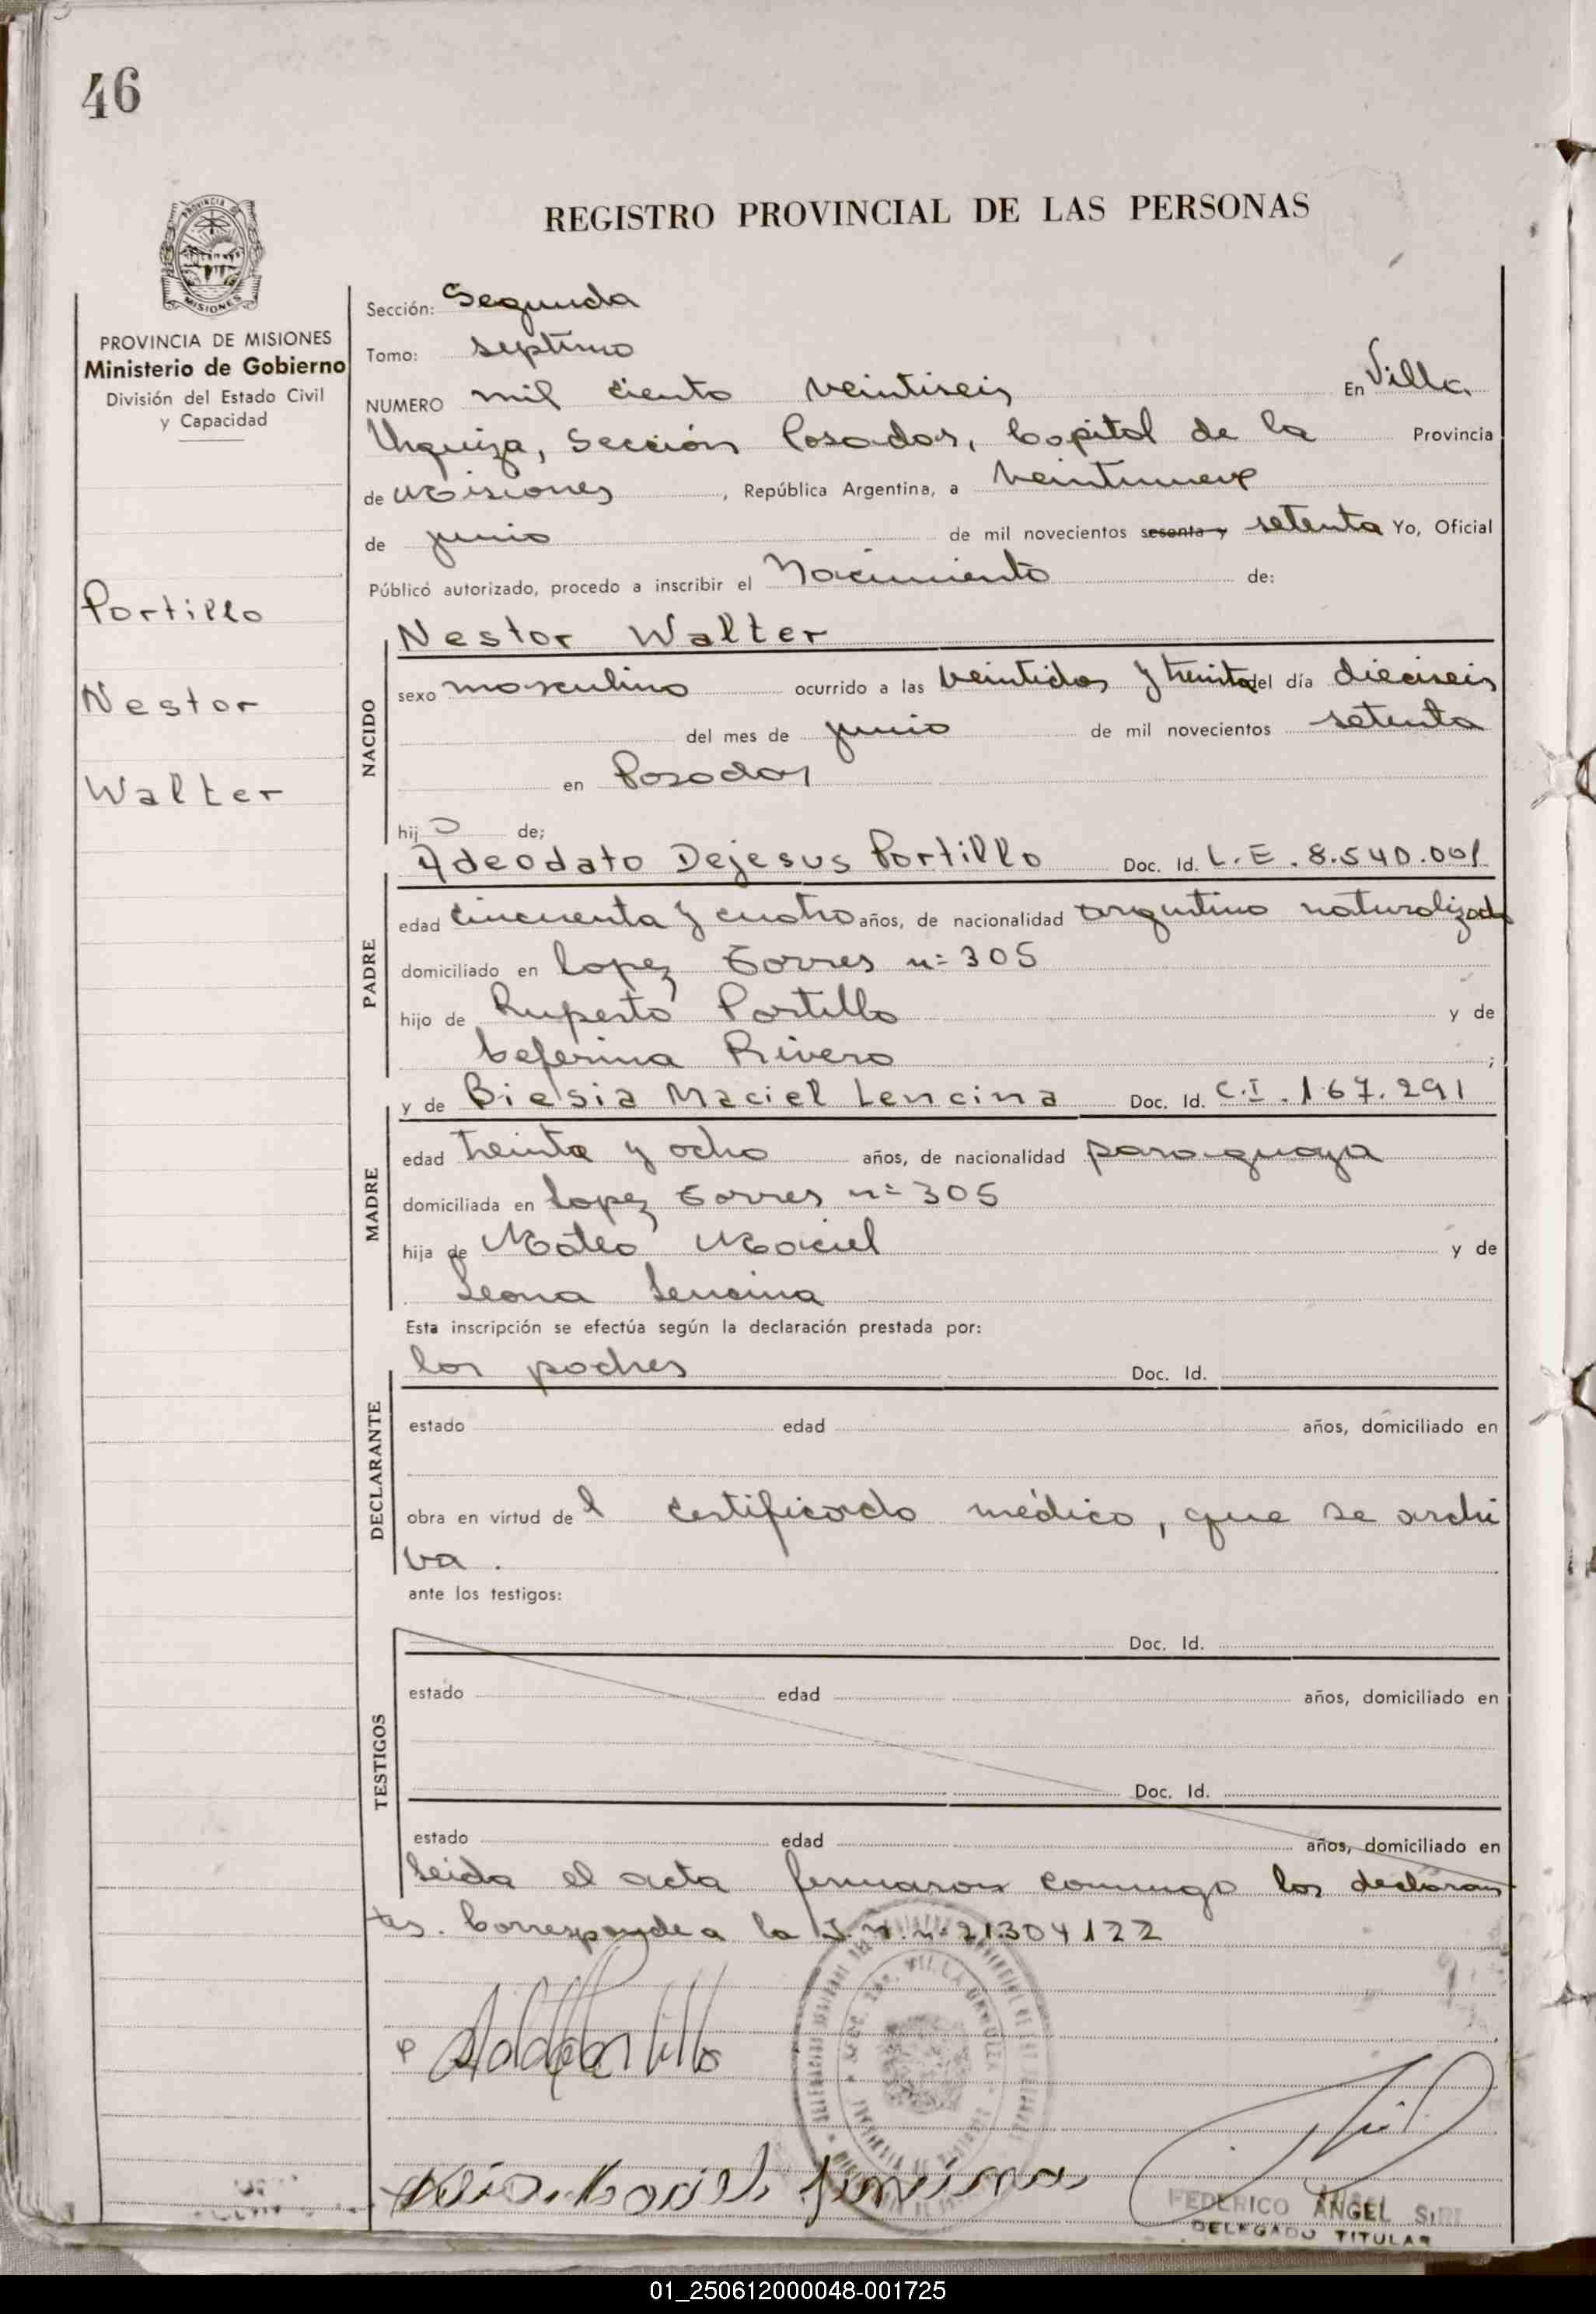 46
REGISTRO PROVINCIAL DE LAS PERSONAS
PROVINCIA DE
MISIONES
PROVINCIA DE MISIONES
Ministerio de Gobierno
División del Estado Civil
y Capacidad
Portillo
Nestor
Walter
Sección: Segunda
Tomo: septimo
NUMERO mil ciento veintiseis En Villa
Urquiza, Sección Posadas, Capital de la Provincia
de Misiones, República Argentina, a veintinueve
de junio de mil novecientos sesenta y setenta Yo, Oficial
Público autorizado, procedo a inscribir el Nacimiento de:
NACIDO
Nestor Walter
sexo masculino ocurrido a las veintidos y treinta del día dieciseis
del mes de junio de mil novecientos setenta
en Posadas
hijo de;
PADRE
Adeodato Dejesus Portillo Doc. Id. L.E. 8.540.001
edad cincuenta y cuatro años, de nacionalidad argentino naturalizado
domiciliado en Lopez Torres n= 305
hijo de Ruperto Portillo y de
Ceferina Rivero ;
MADRE
y de Biesia Maciel Lencina Doc. Id. C.I. 167.291
edad treinta y ocho años, de nacionalidad paraguaya
domiciliada en Lopez Torres n= 305
hija de Mateo Maciel y de
Leona Lencina
Esta inscripción se efectúa según la declaración prestada por:
DECLARANTE
los padres Doc. Id.
estado edad años, domiciliado en
obra en virtud del certificado médico, que se archi
va.
ante los testigos:
TESTIGOS
Doc. Id.
estado edad años, domiciliado en
Doc. Id.
estado edad años, domiciliado en
Leida el acta firmaron conmigo los declaran
tes. Corresponde a la I.N. n= 21304122
VILLA URQUIZA
FEDERICO ANGEL SIRI
DELEGADO TITULAR
01_250612000048-001725